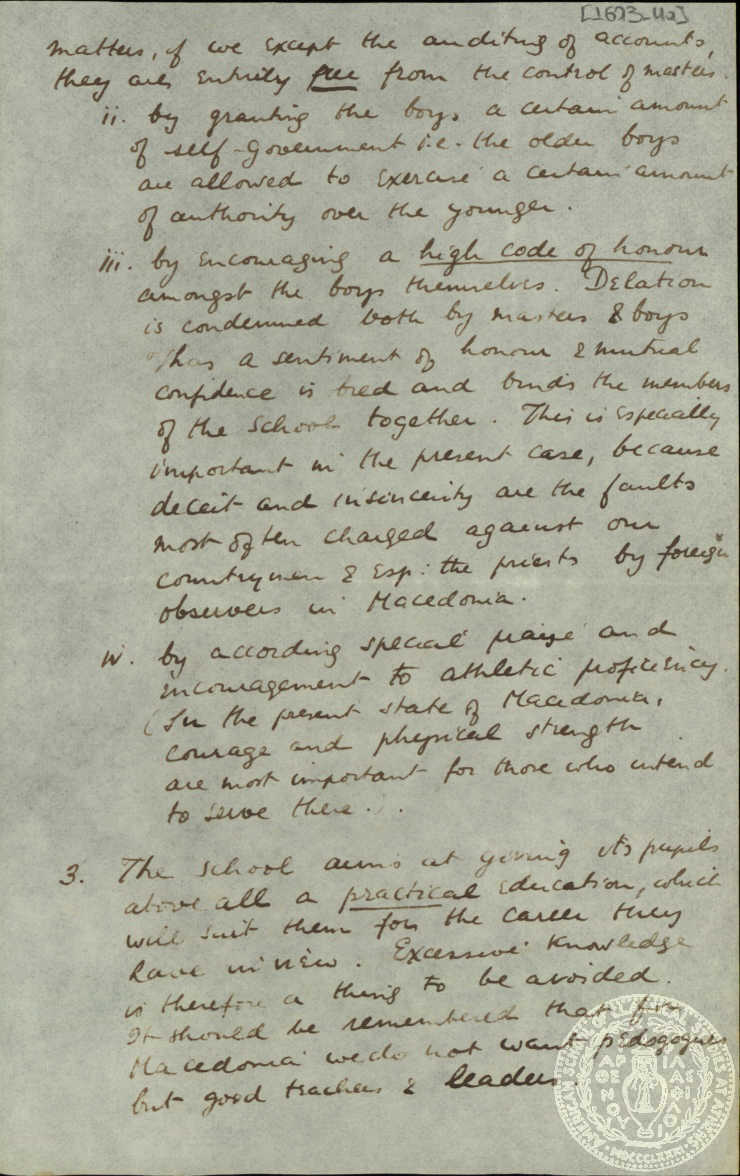 [1673-4a]
matters, if we except the auditing of accounts,
they are entirely free from the control of masters.
ii. by granting the boys a certain amount
of self-government i.e. the older boys
are allowed to exercise a certain amount
of authority over the younger.
iii. by encouraging a high code of honour
amongst the boys themselves. Delation
is condemned both by masters & boys
Thus a sentiment of honour & mutual
confidence is bred and binds the members
of the School together. This is especially
important in the present case, because
deceit and insincerity are the faults
most often charged against our
countrymen & esp: the priests by foreign
observers in Macedonia.
iv. by according special praise and
encouragement to athletic proficiency.
(In the present state of Macedonia,
courage and physical strength
are most important for those who intend
to serve there.).
3. The School aims at giving its pupils
above all a practical education, which
will suit them for the career they
have in view. Excessive knowledge
is therefore a thing to be avoided.
It should be remembered that for
Macedonia we do not want pedagogues
but good teachers & leaders.
AMERICAN SCHOOL OF CLASSICAL STUDIES AT ATHENS
ΠΑΡΘΕΝΟΥ ΦΙΛΑΣ ΦΙΛΟΙ
MDCCCLXXXI